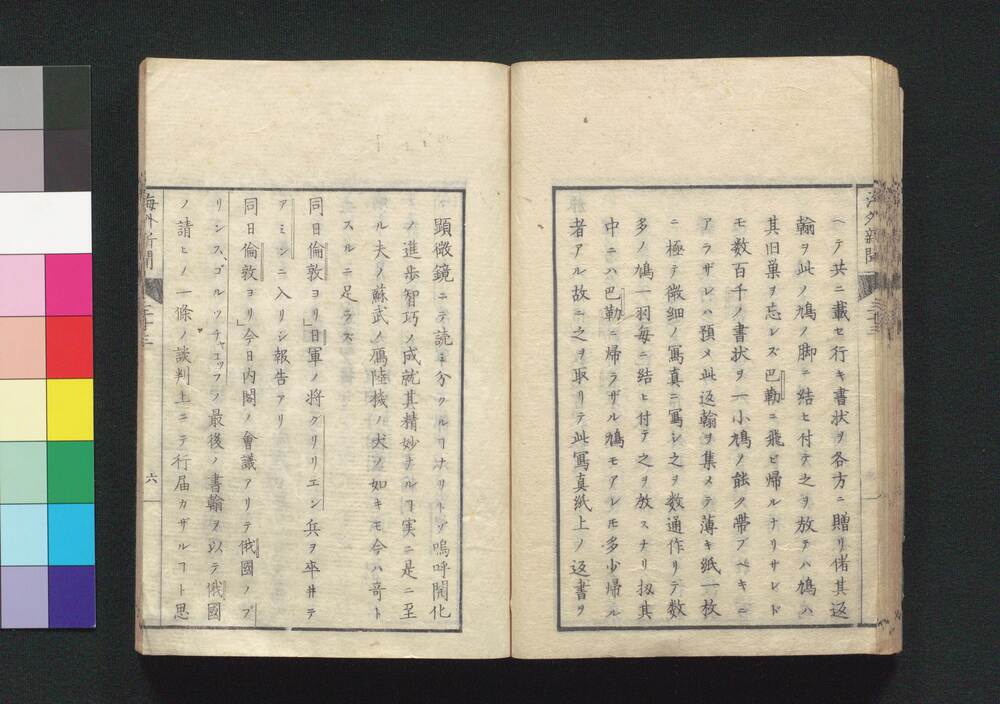 海外新聞
二十三
ヘテ共ニ載セ行キ書状ヲ各方ニ贈リ偖其返
翰ヲ此ノ鳩ノ脚ニ結ヒ付テ之ヲ放テハ鳩ハ
其旧巣ヲ忘レズ巴勒ニ飛ビ帰ルナリサレド
モ数百千ノ書状ヲ一小鳩ノ能ク帶ブベキニ
アラザレハ預メ此返翰ヲ集メテ薄キ紙一枚
ニ極テ微細ノ寫真ニ寫シ之ヲ数通作リテ数
多ノ鳩一羽毎ニ結ヒ付テ之ヲ放スナリ扨其
中ニハ巴勒ニ帰ラザル鳩モアレ𪜈多少帰ル
者アル故ニ之ヲ取リテ此寫真紙上ノ返書ヲ
顕微鏡ニテ読ミ分クルヿナリトゾ嗚呼開化
ノ進歩智巧ノ成就其精妙ナルヿ実ニ是ニ至
ル夫ノ蘇武ノ鴈陸機ノ犬ノ如キモ今ハ奇ト
スルニ足ラズ
同日倫敦ヨリ」日軍ノ将グリリエン兵ヲ率井テ
アミンニ入リシ報告アリ
同日倫敦ヨリ」今日内閣ノ會議アリテ俄國ノプ
リンス、ゴルツチャコッフノ最後ノ書翰ヲ以テ俄國
ノ請ヒノ一條ノ談判上ニテ行届カザルヿト思
海外新聞
二十三
六